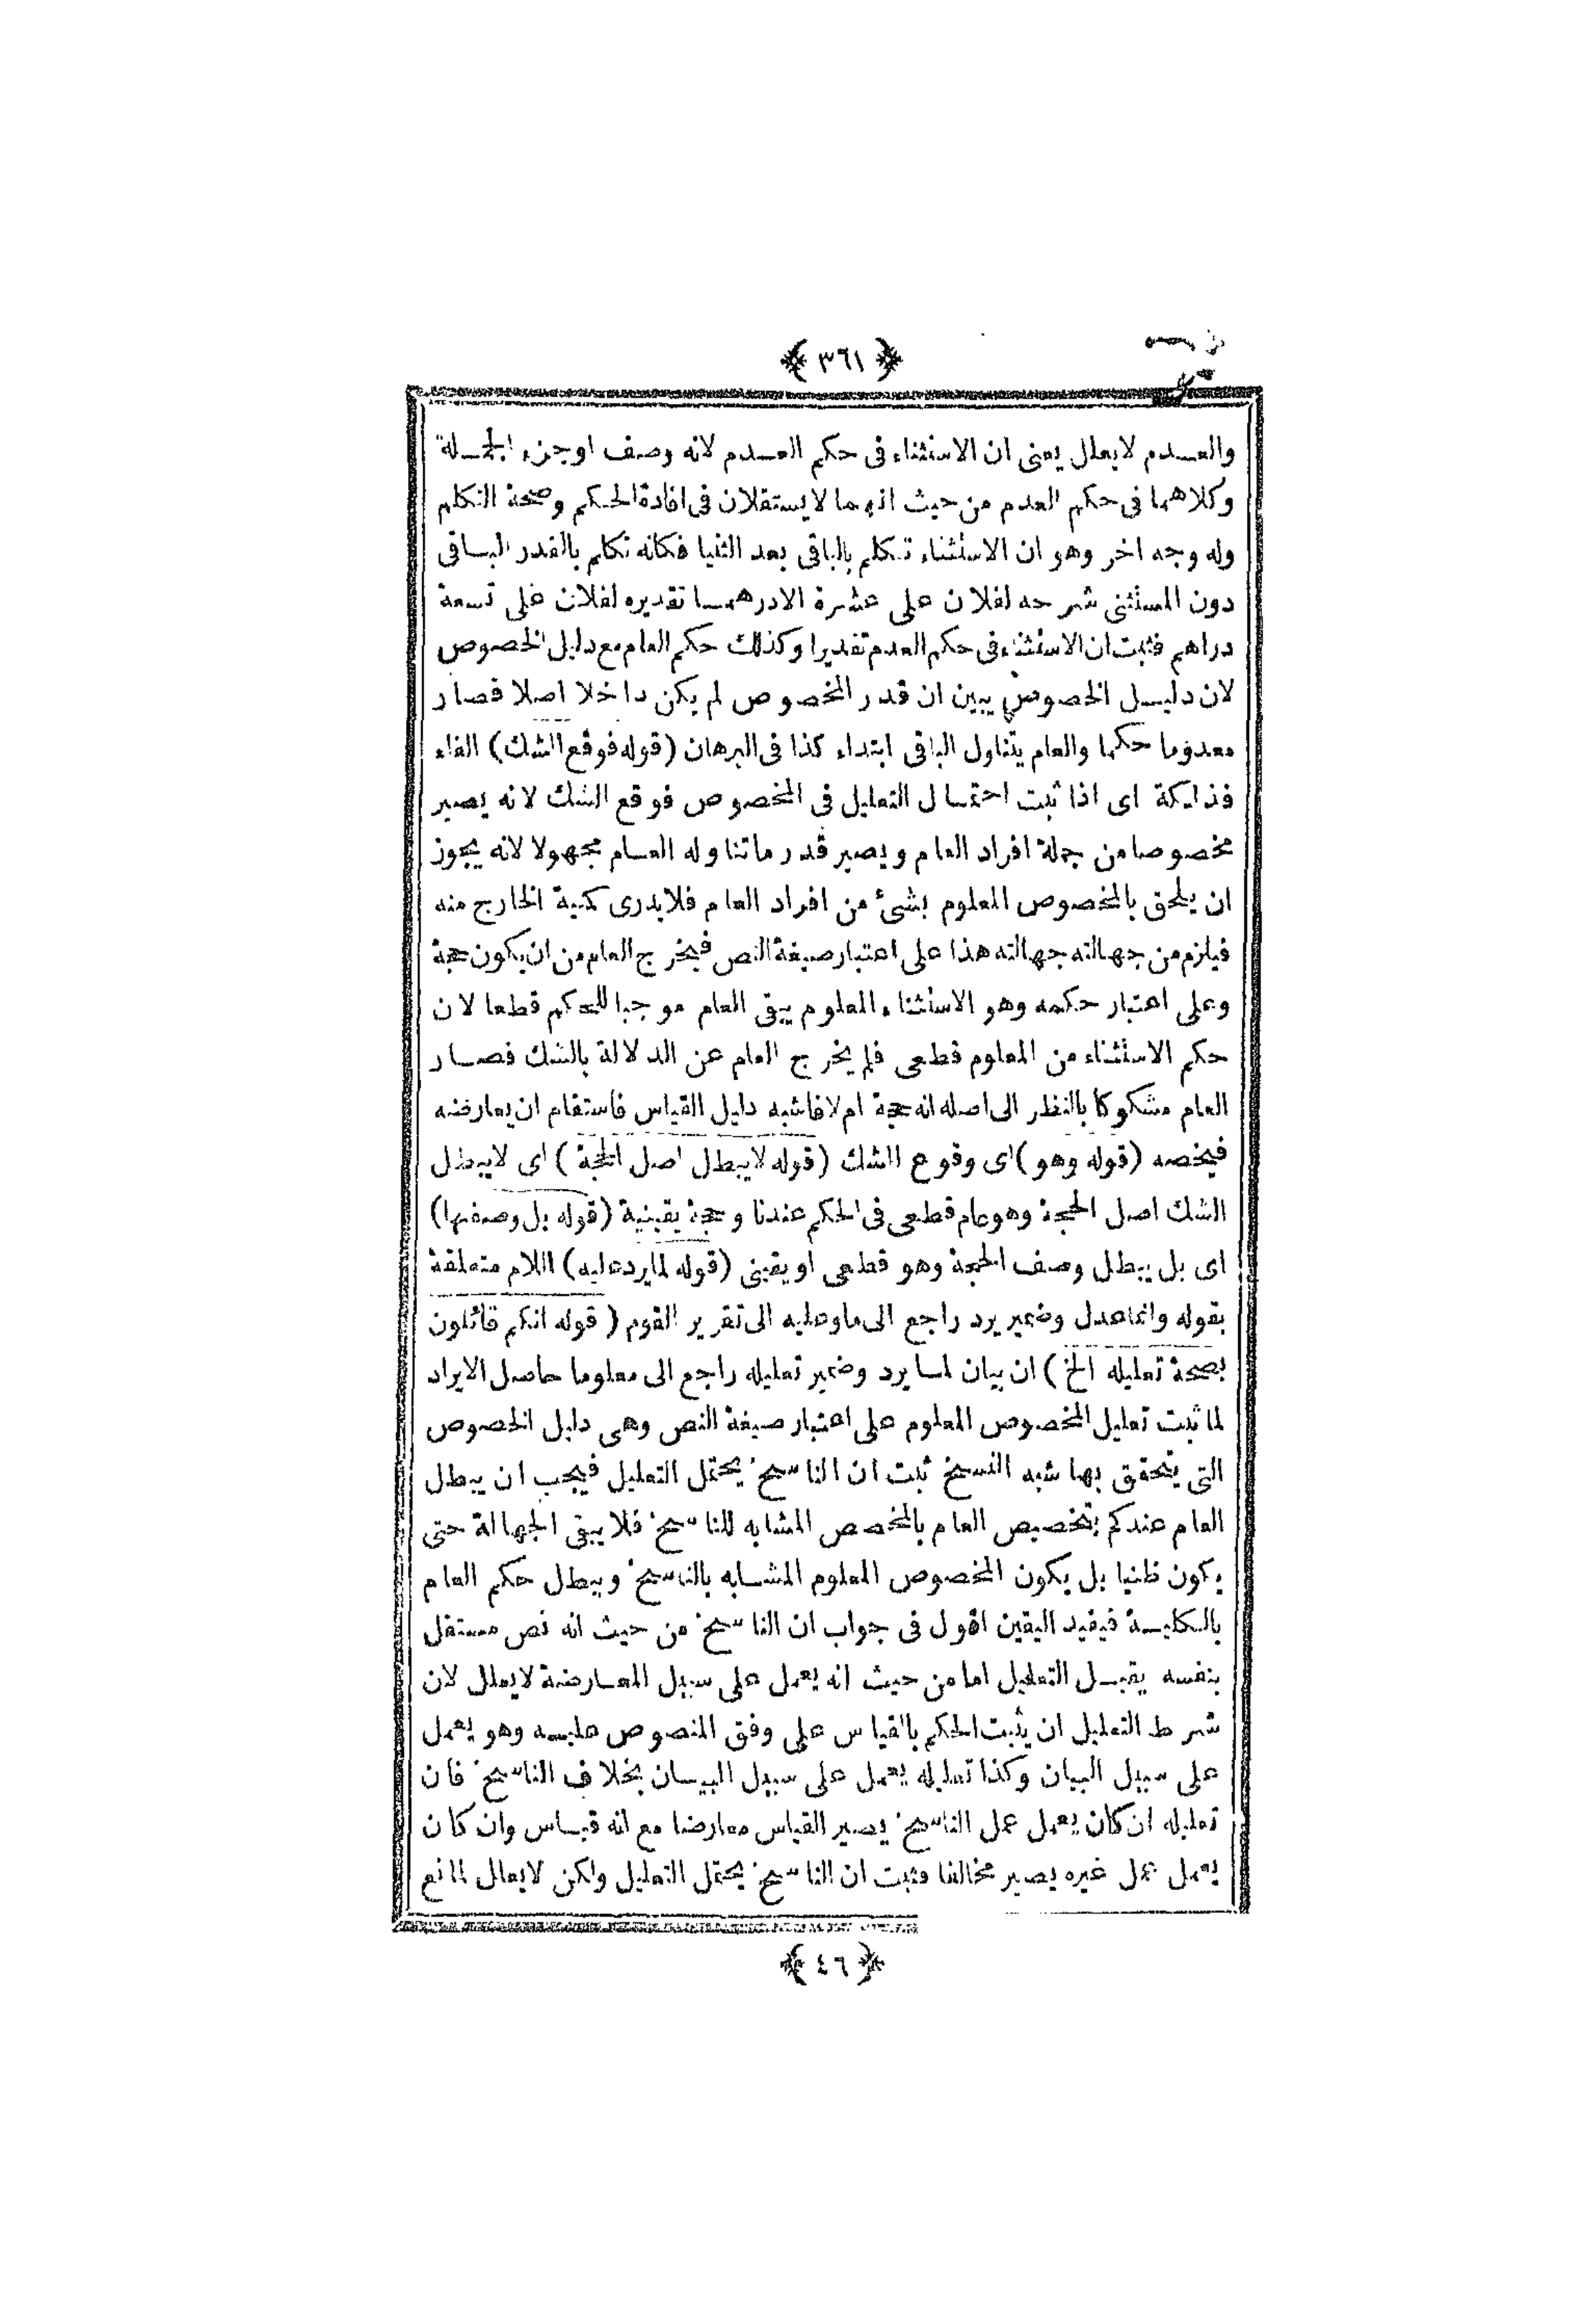 ﴿ ٣٦١ ﴾
والعدم لايعلل يعنى ان الاستثناء فى حكم العدم لانه وصف اوجزء الجملة
وكلاهما فى حكم العدم من حيث انهما لايستقلان فى افادة الحكم وصحة التكلم
وله وجه اخر وهو ان الاستثناء تكلم بالباقى بعد الثنيا فكانه تكلم بالقدر الباقى
دون المستثنى شرحه لفلان على عشرة الادرهما تقديره لفلان على تسعة
دراهم فثبت ان الاستثناء فى حكم العدم تقديرا وكذلك حكم العام مع دليل الخصوص
لان دليل الخصوص يبين ان قدر المخصوص لم يكن داخلا اصلا فصار
معدوما حكما والعام يتناول الباقى ابتداء كذا فى البرهان (قوله فوقع الشك) الفاء
فذلكة اى اذا ثبت احتمال التعليل فى المخصوص فوقع الشك لانه يصير
مخصوصا من جملة افراد العام ويصير قدر ماتناوله العام مجهولا لانه يجوز
ان يلحق بالمخصوص المعلوم بشئ من افراد العام فلايدرى كمية الخارج منه
فيلزم من جهالته جهالته هذا على اعتبار صيغة النص فيخرج العام من ان يكون حجة
وعلى اعتبار حكمه وهو الاستثناء المعلوم يبقى العام موجبا للحكم قطعا لان
حكم الاستثناء من المعلوم قطعى فلم يخرج العام عن الدلالة بالشك فصار
العام مشكوكا بالنظر الى اصله انه حجة ام لا فاشبه دليل القياس فاستقام ان يعارضه
فيخصه (قوله وهو) اى وقوع الشك (قوله لايبطل اصل الحجة) اى لايبطل
الشك اصل الحجة وهو عام قطعى فى الحكم عندنا وحجة يقينية (قوله بل وصفها)
اى بل يبطل وصف الحجة وهو قطعى او يقينى (قوله لمايرد عليه) اللام متعلقة
بقوله وانما عدل وضمير يرد راجع الى ما وعليه الى تقرير القوم (قوله انكم قائلون
بصحة تعليله الخ) ان بيان لما يرد وضمير تعليله راجع الى معلوما حاصل الايراد
لما ثبت تعليل المخصوص المعلوم على اعتبار صيغة النص وهى دليل الخصوص
التى يتحقق بها شبه النسخ ثبت ان الناسخ يحتمل التعليل فيجب ان يبطل
العام عندكم بتخصيص العام بالمخصص المشابه للناسخ فلا يبقى الجهالة حتى
يكون ظنيا بل يكون المخصوص المعلوم المشابه بالناسخ ويبطل حكم العام
بالكلية فيفيد اليقين اقول فى جواب ان الناسخ من حيث انه نص مستقل
بنفسه يقبل التعليل اما من حيث انه يعمل على سبيل المعارضة لايعلل لان
شرط التعليل ان يثبت الحكم بالقياس على وفق المنصوص عليه وهو يعمل
على سبيل البيان وكذا تعليله يعمل على سبيل البيان بخلاف الناسخ فان
تعليله ان كان يعمل عمل الناسخ يصير القياس معارضا مع انه قياس وان كان
يعمل عمل غيره يصير مخالفا فثبت ان الناسخ يحتمل التعليل ولكن لايعلل لمانع
﴿ ٤٦ ﴾